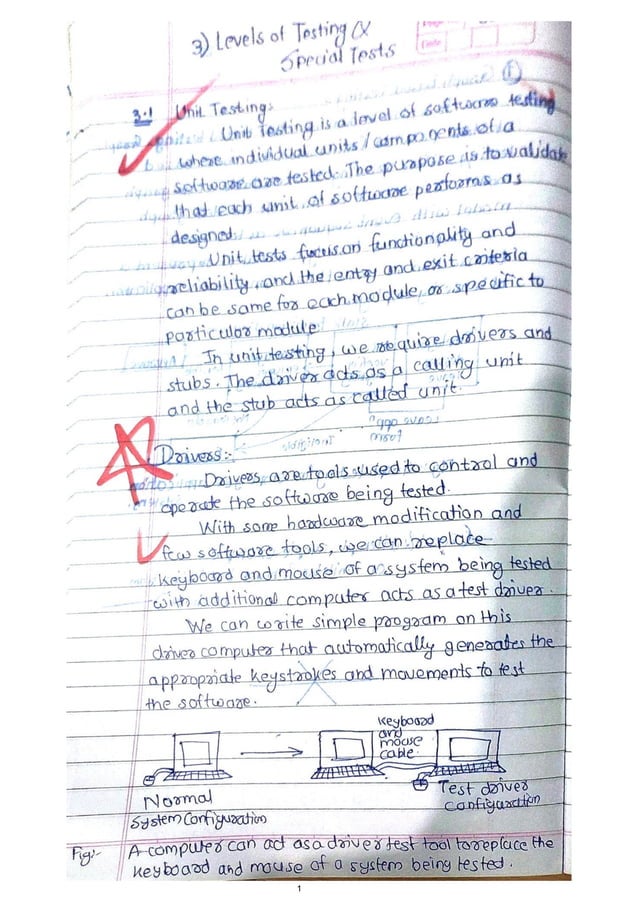 3) Levels of Testing &
Special Tests
1
3.1 Unit Testing:
Unit Testing is a level of software testing
where individual units/components of a
software are tested. The purpose is to validate
that each unit of software performs as
designed.
Unit tests focus on functionality and
reliability, and the entry and exit criteria
can be same for each module, or specific to
particular module
In unit testing, we require drivers and
stubs. The driver acts as a calling unit
and the stub acts as called unit.
Drivers:-
Drivers are tools used to control and
operate the software being tested.
With some hardware modification and
few software tools, we can replace
keyboard and mouse of a system being tested
with additional computer acts as a test driver.
We can write simple program on this
driver computer that automatically generates the
appropriate keystrokes and movements to test
the software.
keyboard
and
mouse
cable.
Normal
System Configuration
Test driver
Configuration
Fig:- A computer can act as a driver test tool to replace the
keyboard and mouse of a system being tested.
1